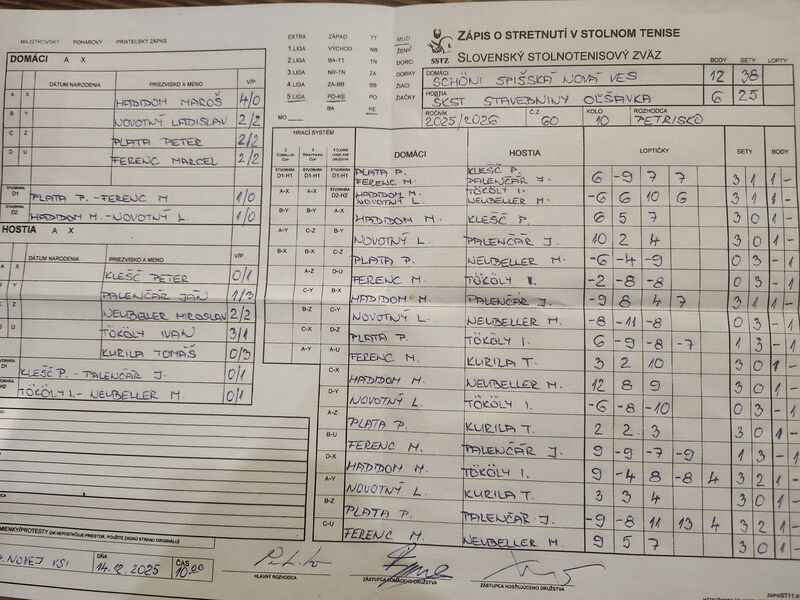 MAJSTROVSKÝ POHÁROVÝ PRIATEĽSKÝ ZÁPAS
EXTRA ZÁPAD TT MUŽI
1.LIGA VÝCHOD NR ŽENY
2.LIGA BA-TT TN DORCI
3.LIGA NR-TN ZA DORKY
4.LIGA ZA-BB BB ŽIACI
5.LIGA PO-KE PO ŽIAČKY
BA KE
MO
SSTZ
ZÁPIS O STRETNUTÍ V STOLNOM TENISE
SLOVENSKÝ STOLNOTENISOVÝ ZVÄZ
BODY SETY LOPTY
DOMÁCI SCHÖNI SPIŠSKÁ NOVÁ VES 12 38
HOSTIA ŠKST STAVEBNINY OĽŠAVKA 6 25
ROČNÍK 2025/2026 Č.Z. 60 KOLO 10 ROZHODCA PETRISKO
DOMÁCI A X
DÁTUM NARODENIA PRIEZVISKO A MENO V/P
A X HADIDOM MAROŠ 4/0
B Y NOVOTNÝ LADISLAV 2/2
C Z PLATA PETER 2/2
D U FERENC MARCEL 2/2
ŠTVORHRA D1 PLATA P. - FERENC M 1/0
ŠTVORHRA D2 HADIDOM M. - NOVOTNÝ L. 1/0
HOSTIA A X
DÁTUM NARODENIA PRIEZVISKO A MENO V/P
A X KLEŠČ PETER 0/1
PALENČÁR JÁN 1/3
NEUBELLER MIROSLAV 2/2
TÖKÖLY IVAN 3/1
KURILA TOMÁŠ 0/3
KLEŠČ P. - PALENČÁR J. 0/1
TÖKÖLY I. - NEUBELLER M. 0/1
HRACÍ SYSTÉM
DOMÁCI HOSTIA LOPTIČKY SETY BODY
PLATA P. FERENC M. KLEŠČ P. PALENČÁR J. 6 -9 7 7 3 1 1 -
HADIDOM M. NOVOTNÝ L. TÖKÖLY I. NEUBELLER M. -6 6 10 6 3 1 1 -
HADIDOM M. KLEŠČ P. 6 5 7 3 0 1 -
NOVOTNÝ L. PALENČÁR J. 10 2 4 3 0 1 -
PLATA P. NEUBELLER M. -6 -4 -9 0 3 - 1
FERENC M. TÖKÖLY I. -2 -8 -8 0 3 - 1
HADIDOM M. PALENČÁR J. -9 8 4 7 3 1 1 -
NOVOTNÝ L. NEUBELLER M. -8 -11 -8 0 3 - 1
PLATA P. TÖKÖLY I. 6 -9 -8 -7 1 3 - 1
FERENC M. KURILA T. 3 2 10 3 0 1 -
HADIDOM M. NEUBELLER M. 12 8 9 3 0 1 -
NOVOTNÝ L. TÖKÖLY I. -6 -8 -10 0 3 - 1
PLATA P. KURILA T. 2 2 3 3 0 1 -
FERENC M. PALENČÁR J. 9 -9 -7 -9 1 3 - 1
HADIDOM M. TÖKÖLY I. 9 -4 8 -8 4 3 2 1 -
NOVOTNÝ L. KURILA T. 3 3 4 3 0 1 -
PLATA P. PALENČÁR J. -9 -8 11 13 4 3 2 1 -
FERENC M. NEUBELLER M. 9 5 7 3 0 1 -
MIENKY/PROTESTY (AK NEPOSTAČUJE PRIESTOR, POUŽITE ZADNÚ STRANU ORIGINÁLU)
P. NOVEJ VSI DŇA 14.12.2025 ČAS 10.00
HLAVNÝ ROZHODCA
ZÁSTUPCA DOMÁCEHO DRUŽSTVA
ZÁSTUPCA HOSŤUJÚCEHO DRUŽSTVA